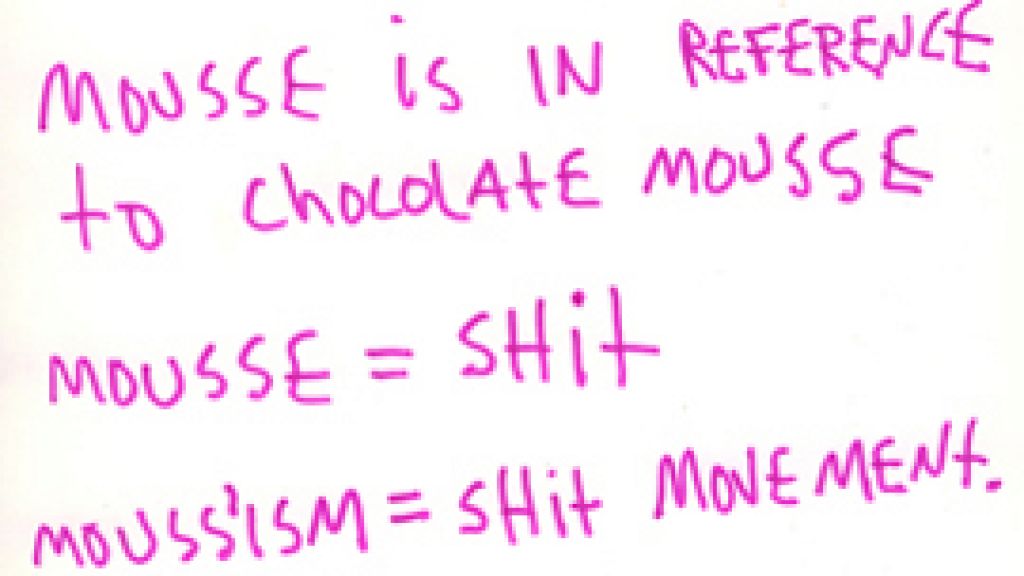 MOUSSE is IN REFERENCE
to ChocolAtE MOUSSE
MOUSSE = SHit
MOUSS'ISM = SHit MOVEMENt.